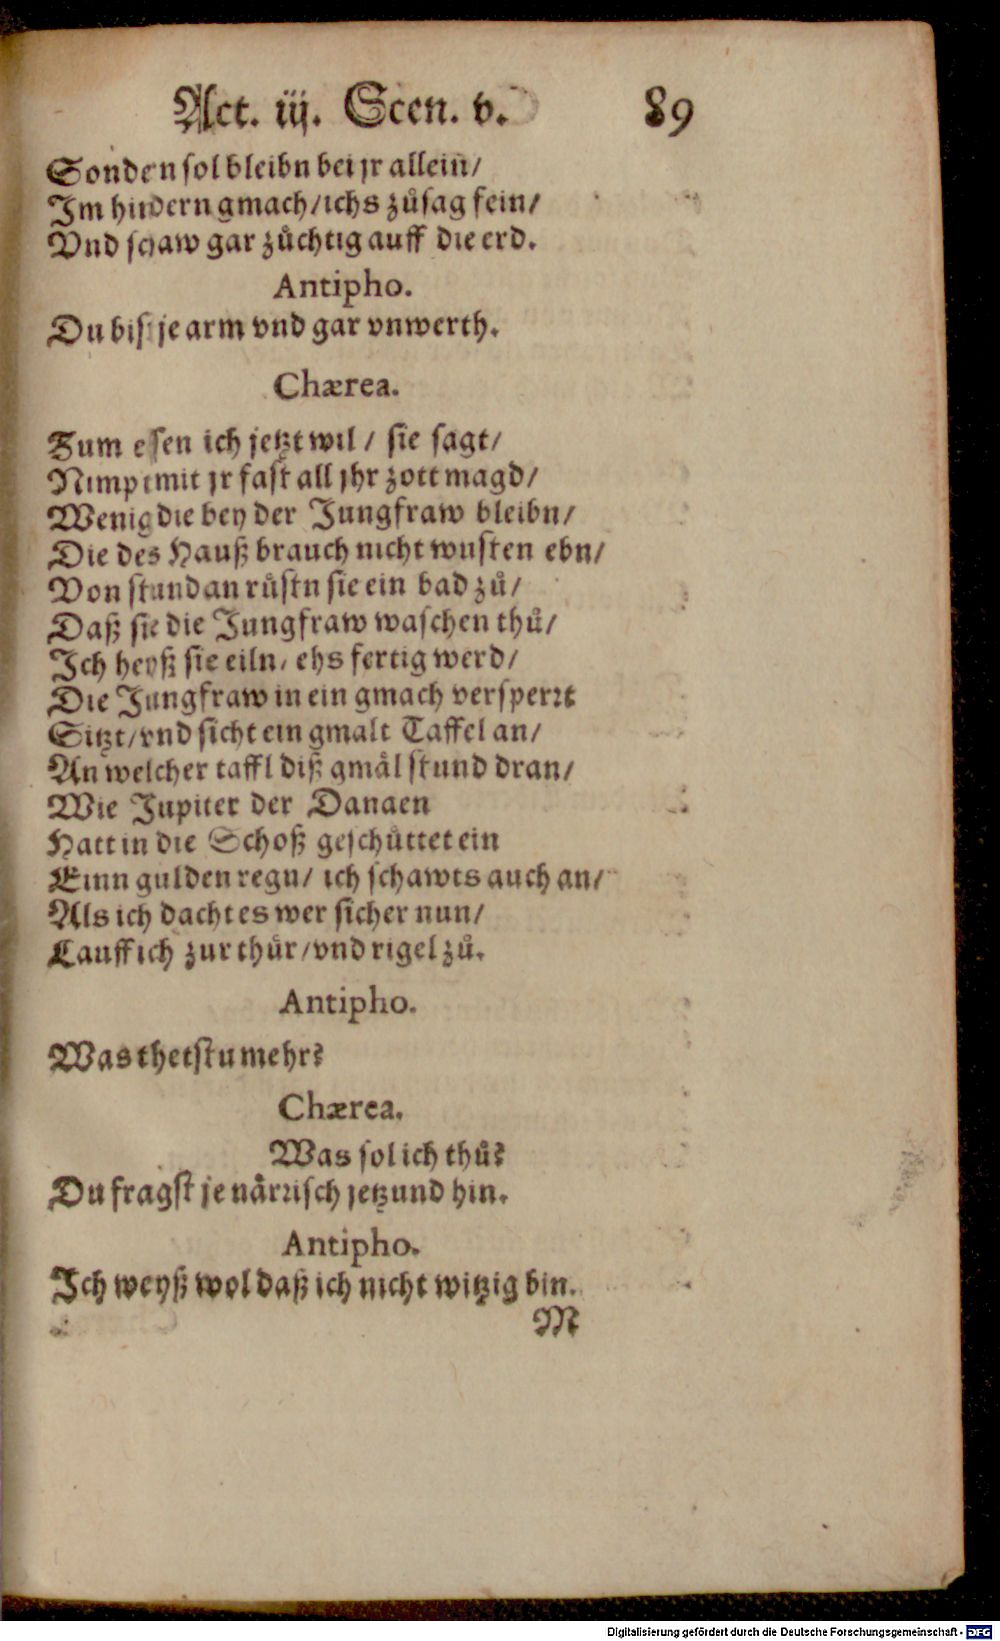 Act. iij. Scen. v. 89
Sonden sol bleibn bei jr allein/
Im hindern gmach/ichs zůsag fein/
Vnd schaw gar zůchtig auff die erd.
Antipho.
Du bist je arm vnd gar vnwerth.
Chærea.
Zum essen ich jetzt wil / sie sagt/
Nimpt mit jr fast all jhr zott magd/
Wenig die bey der Jungfraw bleibn/
Die des Hauß brauch nicht wusten ebn/
Von stund an růstn sie ein bad zů/
Daß sie die Jungfraw waschen thů/
Ich heyß sie eiln/ ehs fertig werd/
Die Jungfraw in ein gmach versperrt
Sitzt/vnd sicht ein gmalt Taffel an/
An welcher taffl diß gmål stund dran/
Wie Jupiter der Danaen
Hatt in die Schoß geschůttet ein
Einn gulden regn/ ich schawts auch an/
Als ich dacht es wer sicher nun/
Lauff ich zur thůr/vnd rigel zů.
Antipho.
Was thetstu mehr?
Chærea.
Was sol ich thů?
Du fragst je nårrisch jetzund hin.
Antipho.
Ich weyß wol daß ich nicht witzig bin.
M
Digitalisierung gefördert durch die Deutsche Forschungsgemeinschaft - DFG